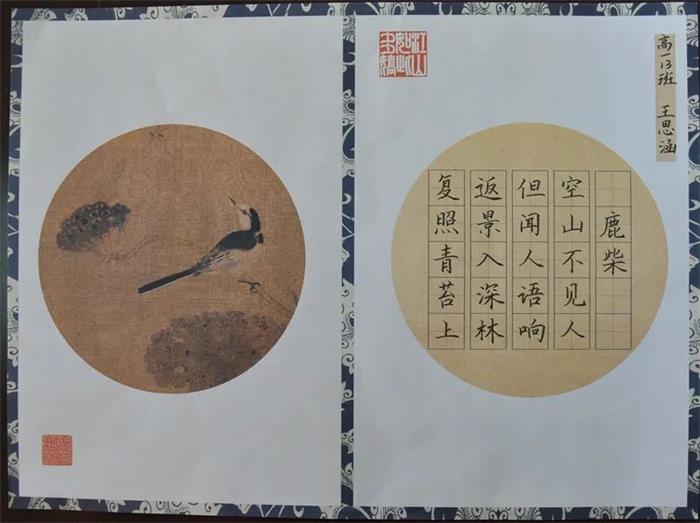 高一13班 王思涵
鹿柴
空山不见人
但闻人语响
返景入深林
复照青苔上
江山如此多娇